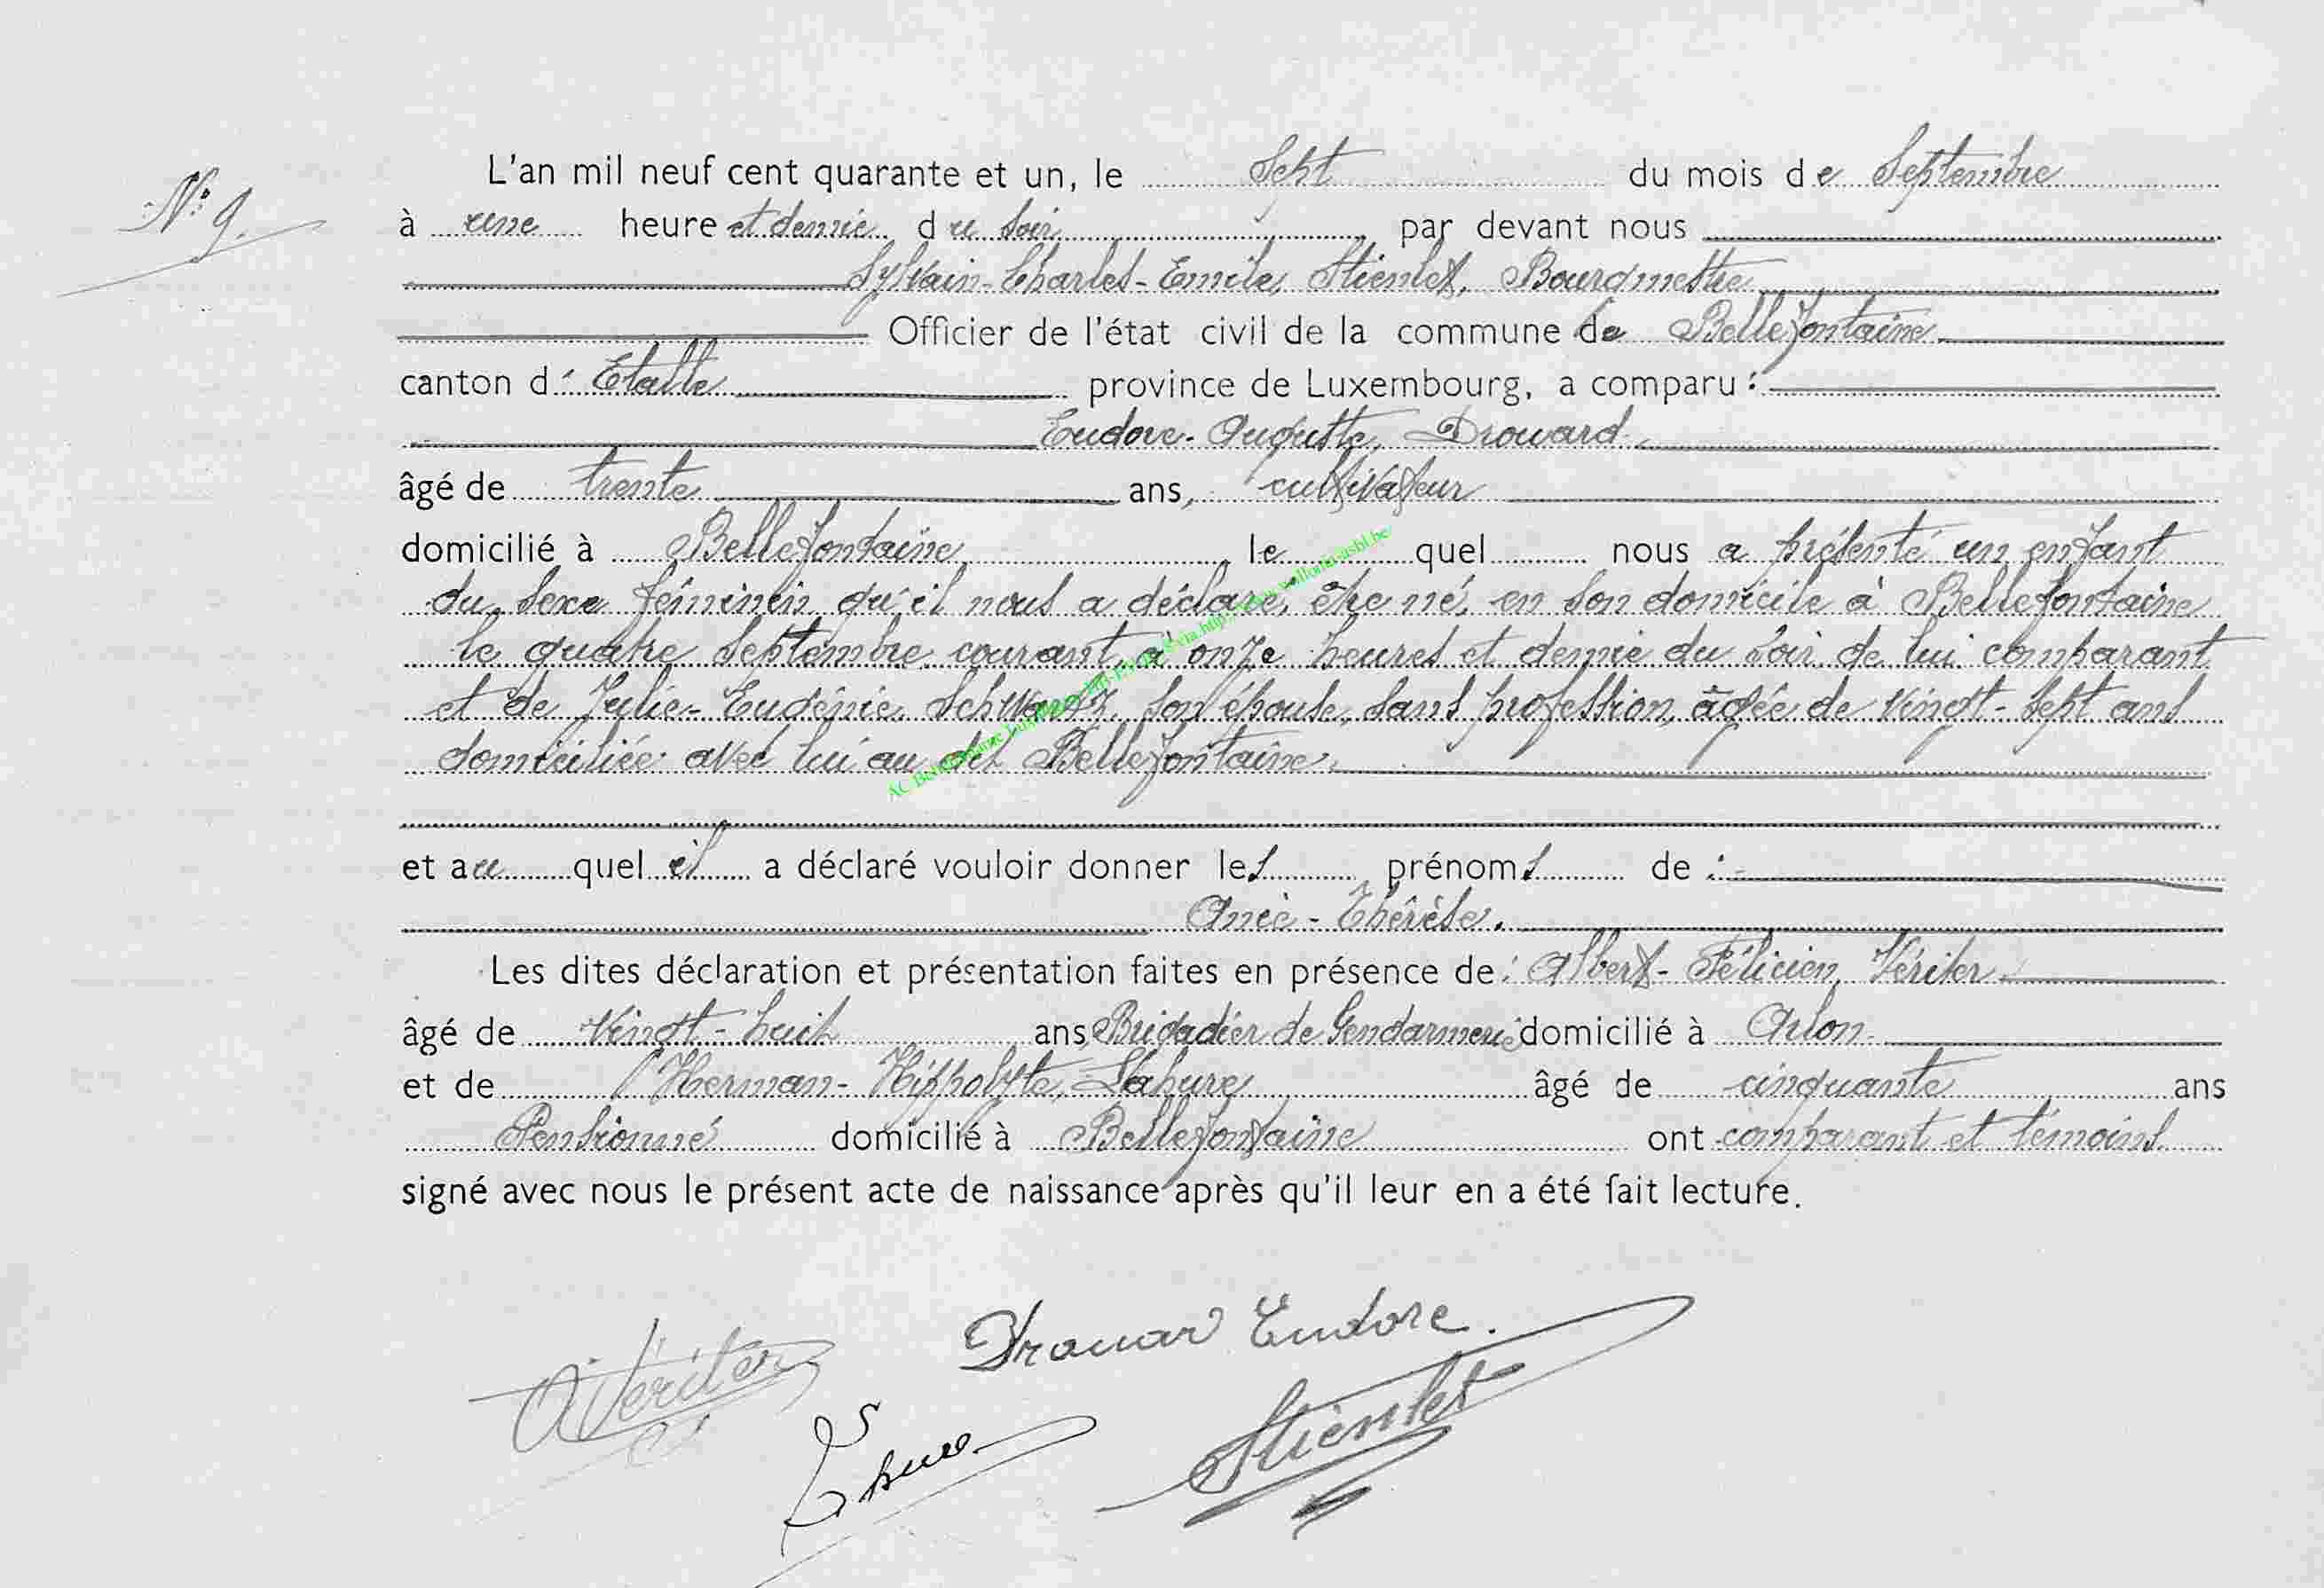 N° 9.
L'an mil neuf cent quarante et un, le Sept du mois de Septembre
à une heure et demie du soir, par devant nous
Sylvain-Charles-Emile, Stienlet, Bourgmestre
Officier de l'état civil de la commune de Bellefontaine
canton d' Etalle province de Luxembourg, a comparu :
Eudore-Auguste, Drouard
âgé de trente ans, cultivateur
domicilié à Bellefontaine, le quel nous a présenté un enfant
du sexe féminin qu'il nous a déclaré, être né, en son domicile à Bellefontaine
le quatre Septembre courant, à onze heures et demie du soir de lui comparant
et de Julie-Eugénie, Schwartz, son épouse, sans profession, âgée de vingt-sept ans
domiciliée avec lui au dit Bellefontaine.
et au quel il a déclaré vouloir donner les prénoms de :
Thérèse.
Les dites déclaration et présentation faites en présence de : Albert-Félicien, Vériter
âgé de vingt-huit ans, Brigadier de Gendarmerie domicilié à Arlon
et de Herman-Hippolyte, Lahure âgé de cinquante ans
Pensionné domicilié à Bellefontaine ont comparant et témoins
signé avec nous le présent acte de naissance après qu'il leur en a été fait lecture.
Drouard Eudore.
A Vériter
Lahure
Stienlet